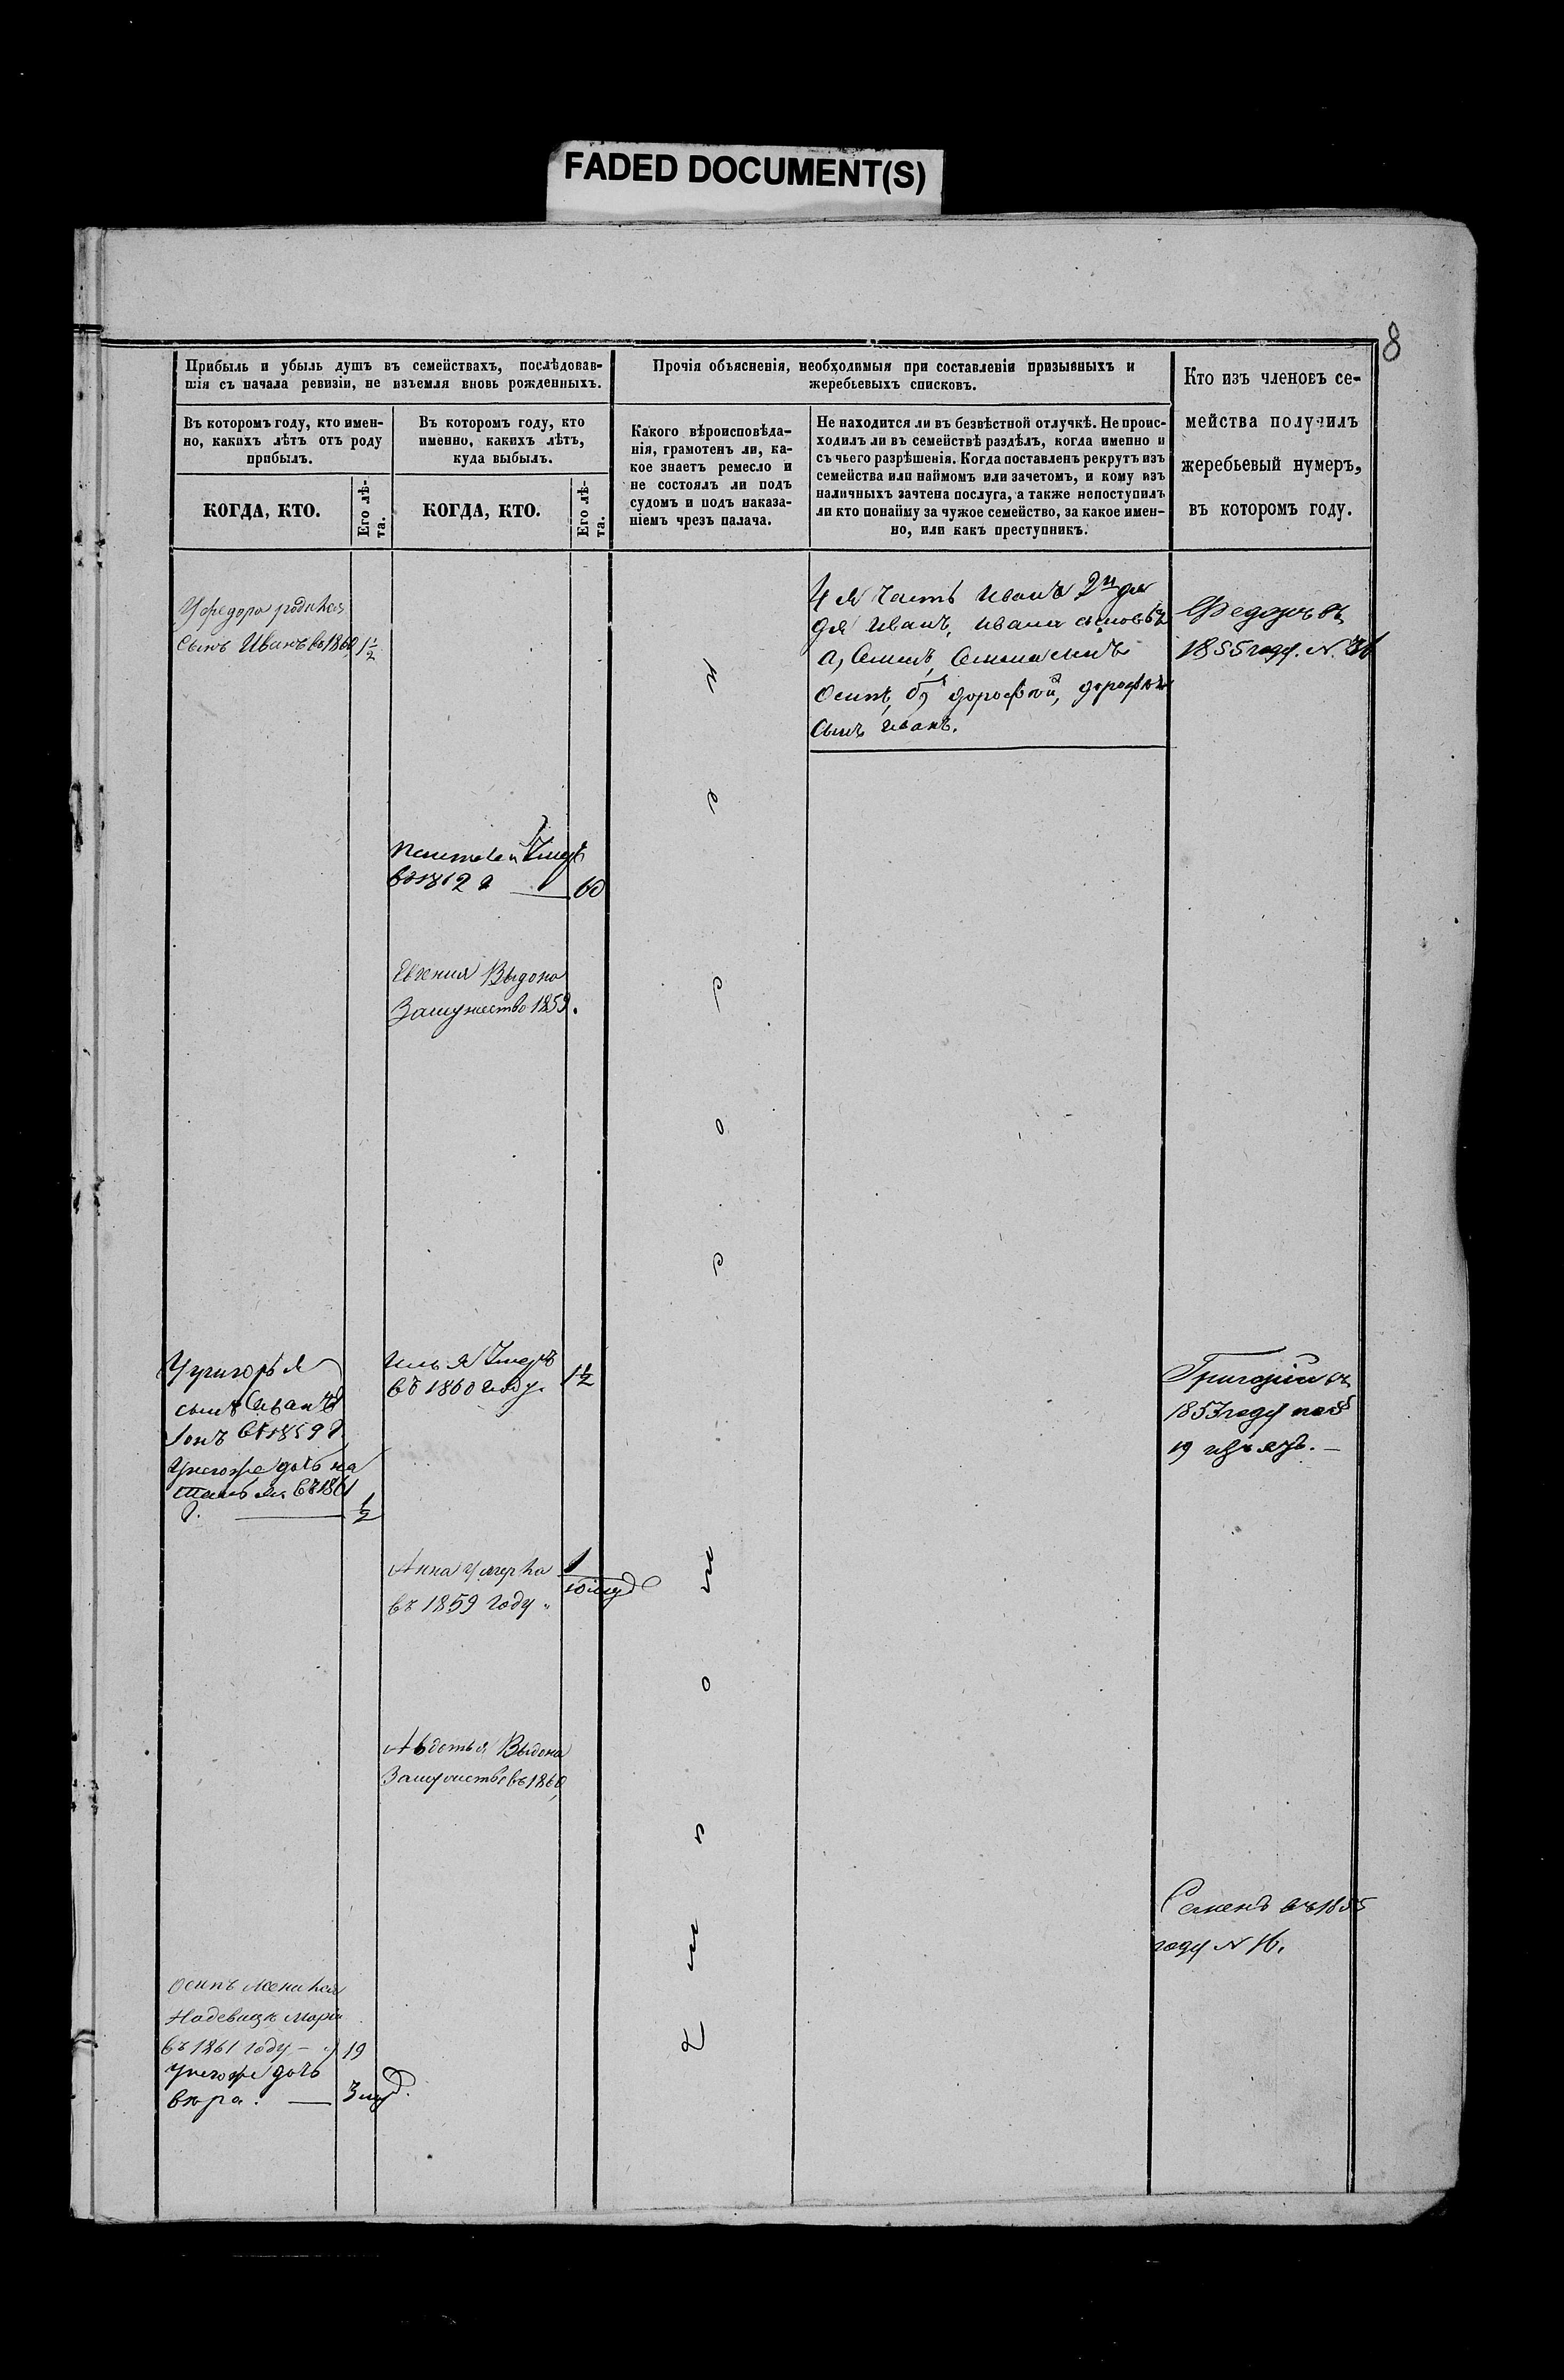 FADED DOCUMENT(S)
8
Прибыль и убыль душъ въ семействахъ, послѣдовав-
шія съ начала ревизіи, не изъемля вновь рожденныхъ.
Въ которомъ году, кто имен-
но, какихъ лѣтъ отъ роду
прибылъ.
Въ которомъ году, кто
именно, какихъ лѣтъ,
куда выбылъ.
КОГДА, КТО.
Его лѣ-
та.
КОГДА, КТО.
Его лѣ-
та.
Прочія объясненія, необходимыя при составленіи призывныхъ и
жеребьевыхъ списковъ.
Какого вѣроисповѣда-
нія, грамотенъ ли, ка-
кое знаетъ ремесло и
не состоялъ ли подъ
судомъ и подъ наказа-
ніемъ чрезъ палача.
Не находится ли въ безвѣстной отлучкѣ. Не проис-
ходилъ ли въ семействѣ раздѣлъ, когда именно и
съ чьего разрѣшенія. Когда поставленъ рекрутъ изъ
семейства или наймомъ или зачетомъ, и кому изъ
наличныхъ зачтена послуга, а также непоступилъ
ли кто понайму за чужое семейство, за какое имен-
но, или какъ преступникъ.
Кто изъ членовъ се-
мейства получилъ
жеребьевый нумеръ,
въ которомъ году.
Уфедора родился
сынъ Иванъ въ 1860 1½
4я часть Иванъ 2й
дя Иванъ, Ивана сыновья
а, Семенъ, Семена сынъ
Осипъ, б, дорофей, дорофея
Сынъ иванъ.
Федоръ въ
1855 году. N. 36
умеръ
въ 1862 60
Евгения Выдана
Замужество 1859.
Угригорья
сынъ
въ 1859
Унегоже дочь на
талья въ 1861
½
илья умеръ
въ 1860 году. 1½
Григорій въ
1853 году
19 изъятъ.
Анна умерла
въ 1859 году 1
Авдотья Выдана
Замужство въ 1860
Семенъ въ 1855
году N 16.
Осипъ женился
Надевице Марiи
въ 1861 году 19
унегоже дочь
вѣра. 3